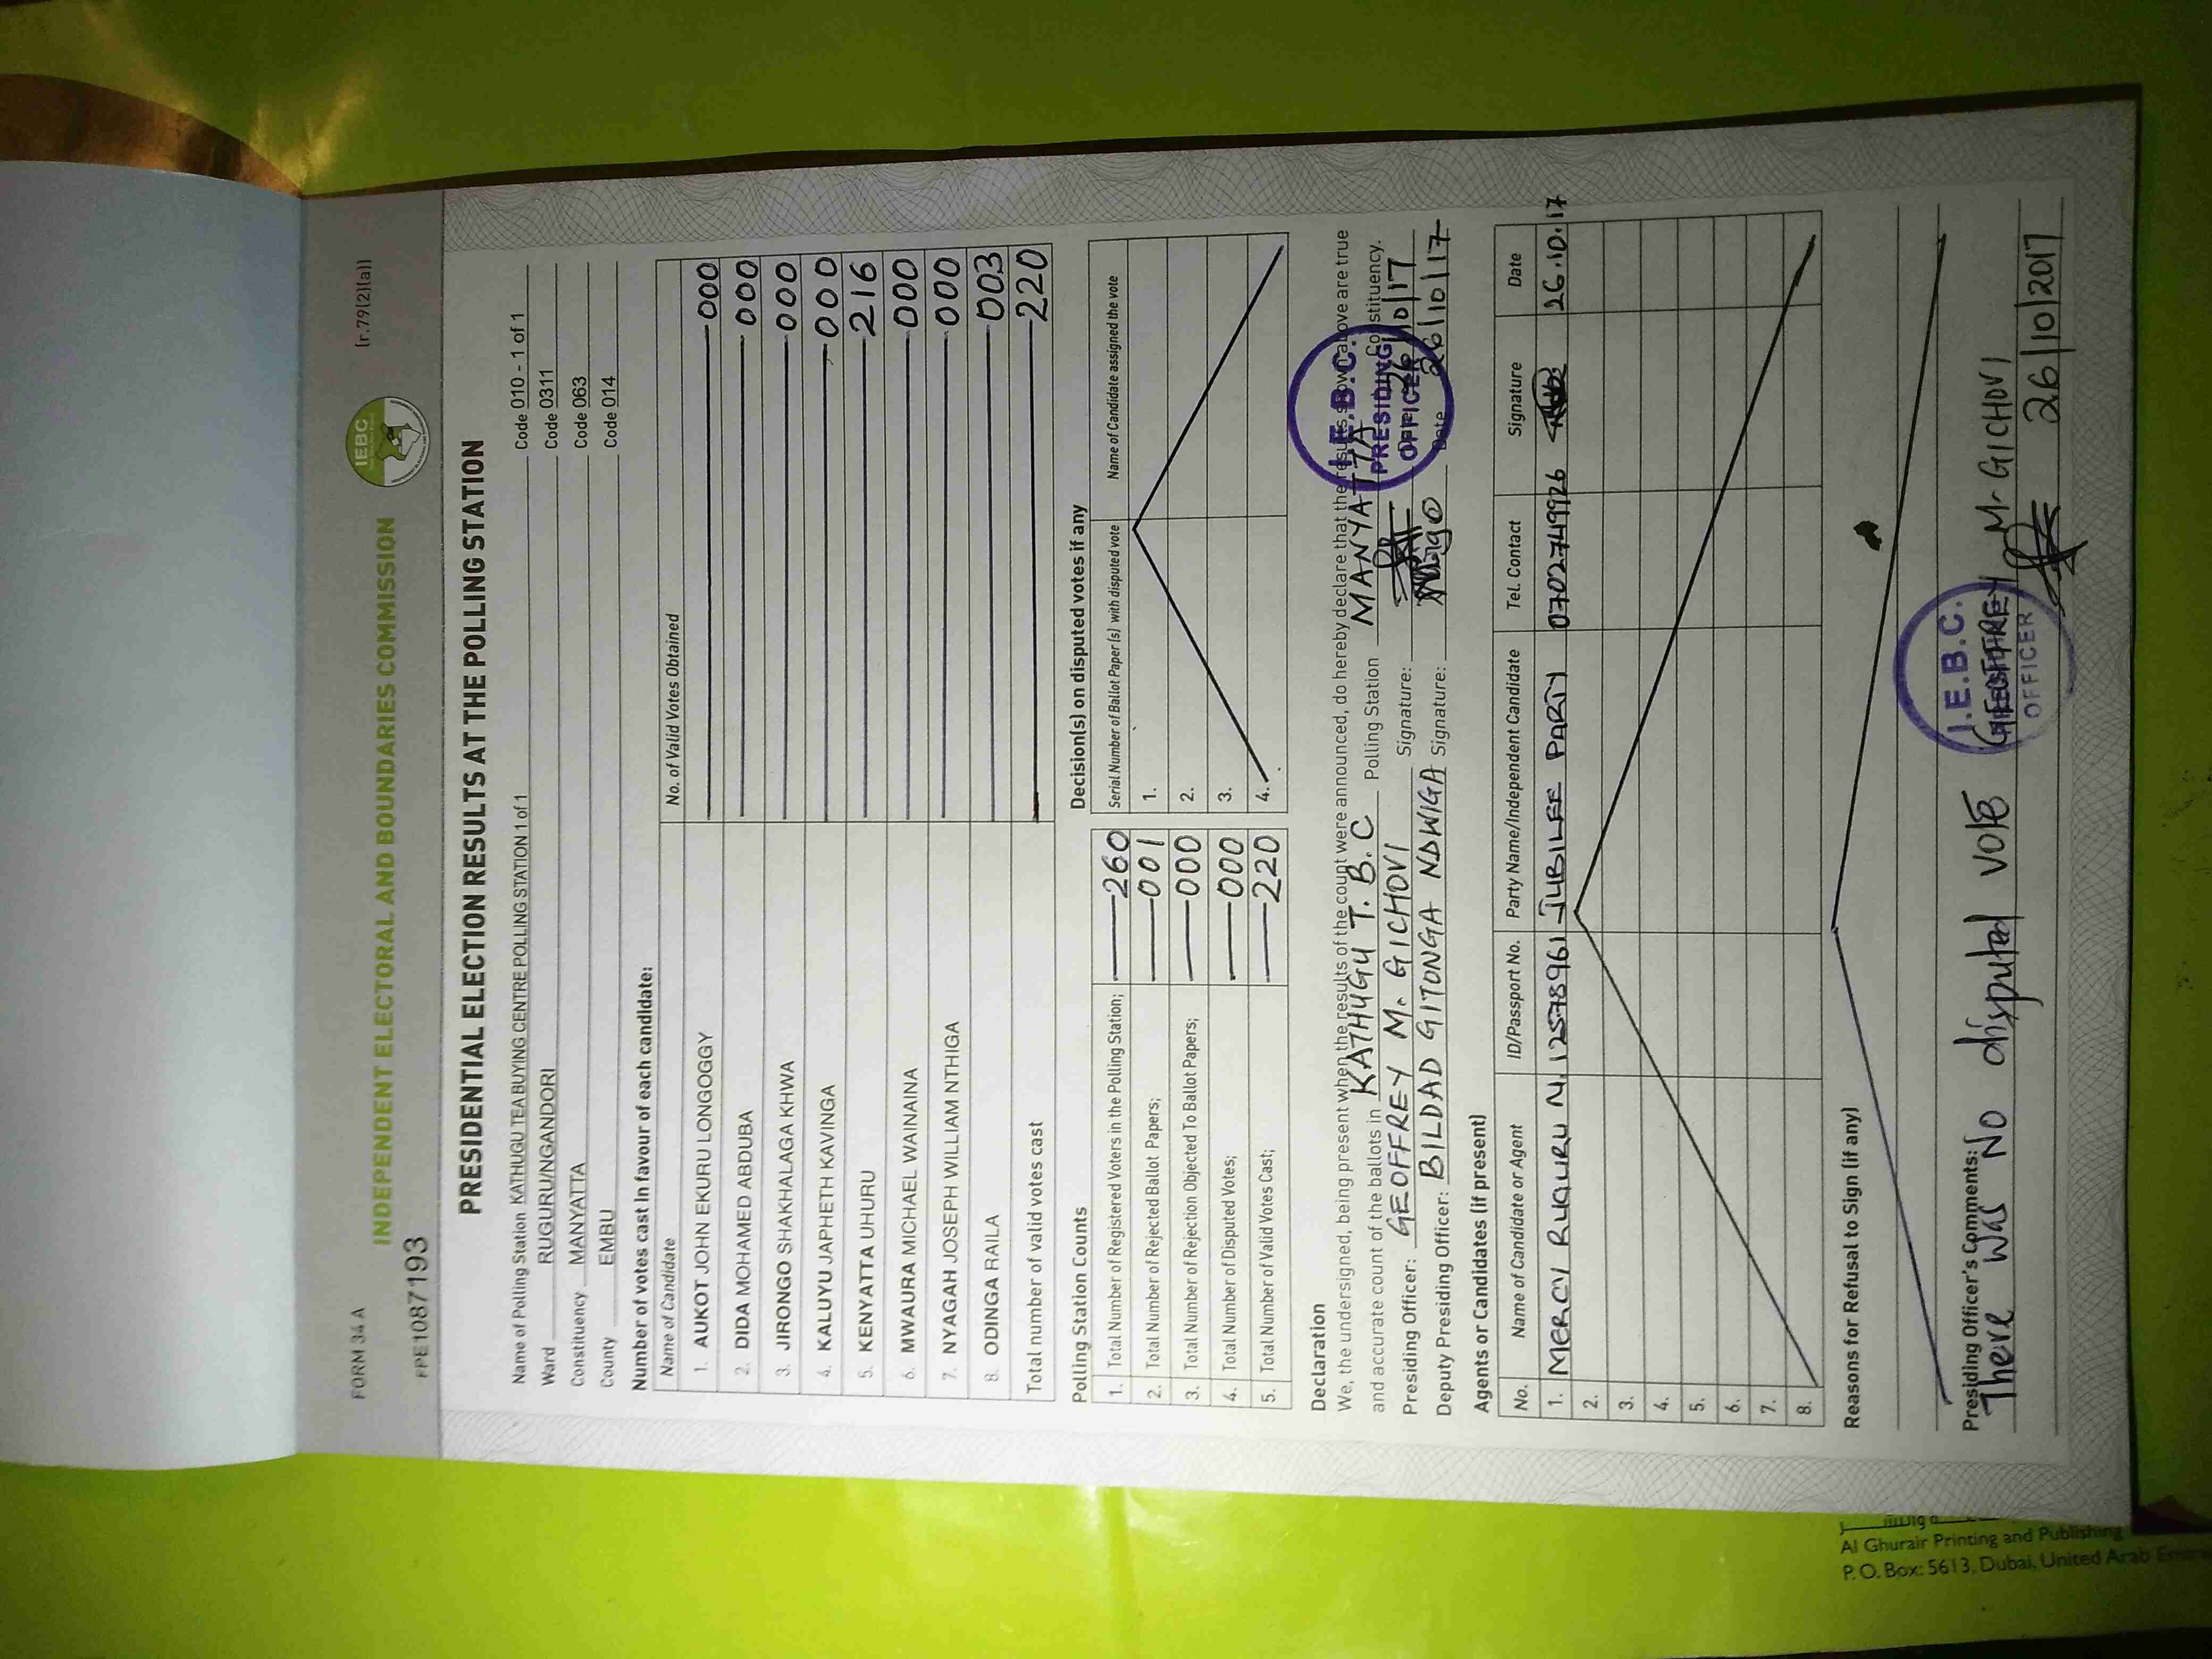 FORM 34 A
(r.79(2)(a))
FPE1087193
INDEPENDENT ELECTORAL AND BOUNDARIES COMMISSION
IEBC
PRESIDENTIAL ELECTION RESULTS AT THE POLLING STATION
Name of Polling Station KATHUGU TEA BUYING CENTRE POLLING STATION 1 of 1 Code 010 - 1 of 1
Ward RUGURU/NGANDORI Code 0311
Constituency MANYATTA Code 063
County EMBU Code 014
Number of votes cast in favour of each candidate:
Name of Candidate No. of Valid Votes Obtained
1. AUKOT JOHN EKURU LONGOGGY 000
2. DIDA MOHAMED ABDUBA 000
3. JIRONGO SHAKHALAGA KHWA 000
4. KALUYU JAPHETH KAVINGA 000
5. KENYATTA UHURU 216
6. MWAURA MICHAEL WAINAINA 000
7. NYAGAH JOSEPH WILLIAM NTHIGA 000
8. ODINGA RAILA 003
Total number of valid votes cast 220
Polling Station Counts
1. Total Number of Registered Voters in the Polling Station; 260
2. Total Number of Rejected Ballot Papers; 001
3. Total Number of Rejection Objected To Ballot Papers; 000
4. Total Number of Disputed Votes; 000
5. Total Number of Valid Votes Cast; 220
Decision(s) on disputed votes if any
Serial Number of Ballot Paper (s) with disputed vote Name of Candidate assigned the vote
1.
2.
3.
4.
Declaration
We, the undersigned, being present when the results of the count were announced, do hereby declare that the results shown above are true
and accurate count of the ballots in KATHUGU T. B. C Polling Station MANYATTA Constituency.
Presiding Officer: GEOFFREY M. GICHOVI Signature: Date 26/10/17
Deputy Presiding Officer: BILDAD GITONGA NDWIGA Signature: Date 26/10/17
I.E.B.C.
PRESIDING
OFFICER
Agents or Candidates (if present)
No. Name of Candidate or Agent ID/Passport No. Party Name/Independent Candidate Tel. Contact Signature Date
1. MERCY RUGURU N. 12578961 JUBILEE PARTY 0702749926 26.10.17
2.
3.
4.
5.
6.
7.
8.
Reasons for Refusal to Sign (if any)
Presiding Officer's Comments:
There was No disputed vote GEOFFREY M. GICHOVI
26/10/2017
I.E.B.C.
OFFICER
Al Ghurair Printing and Publishing
P. O. Box: 5613, Dubai, United Arab